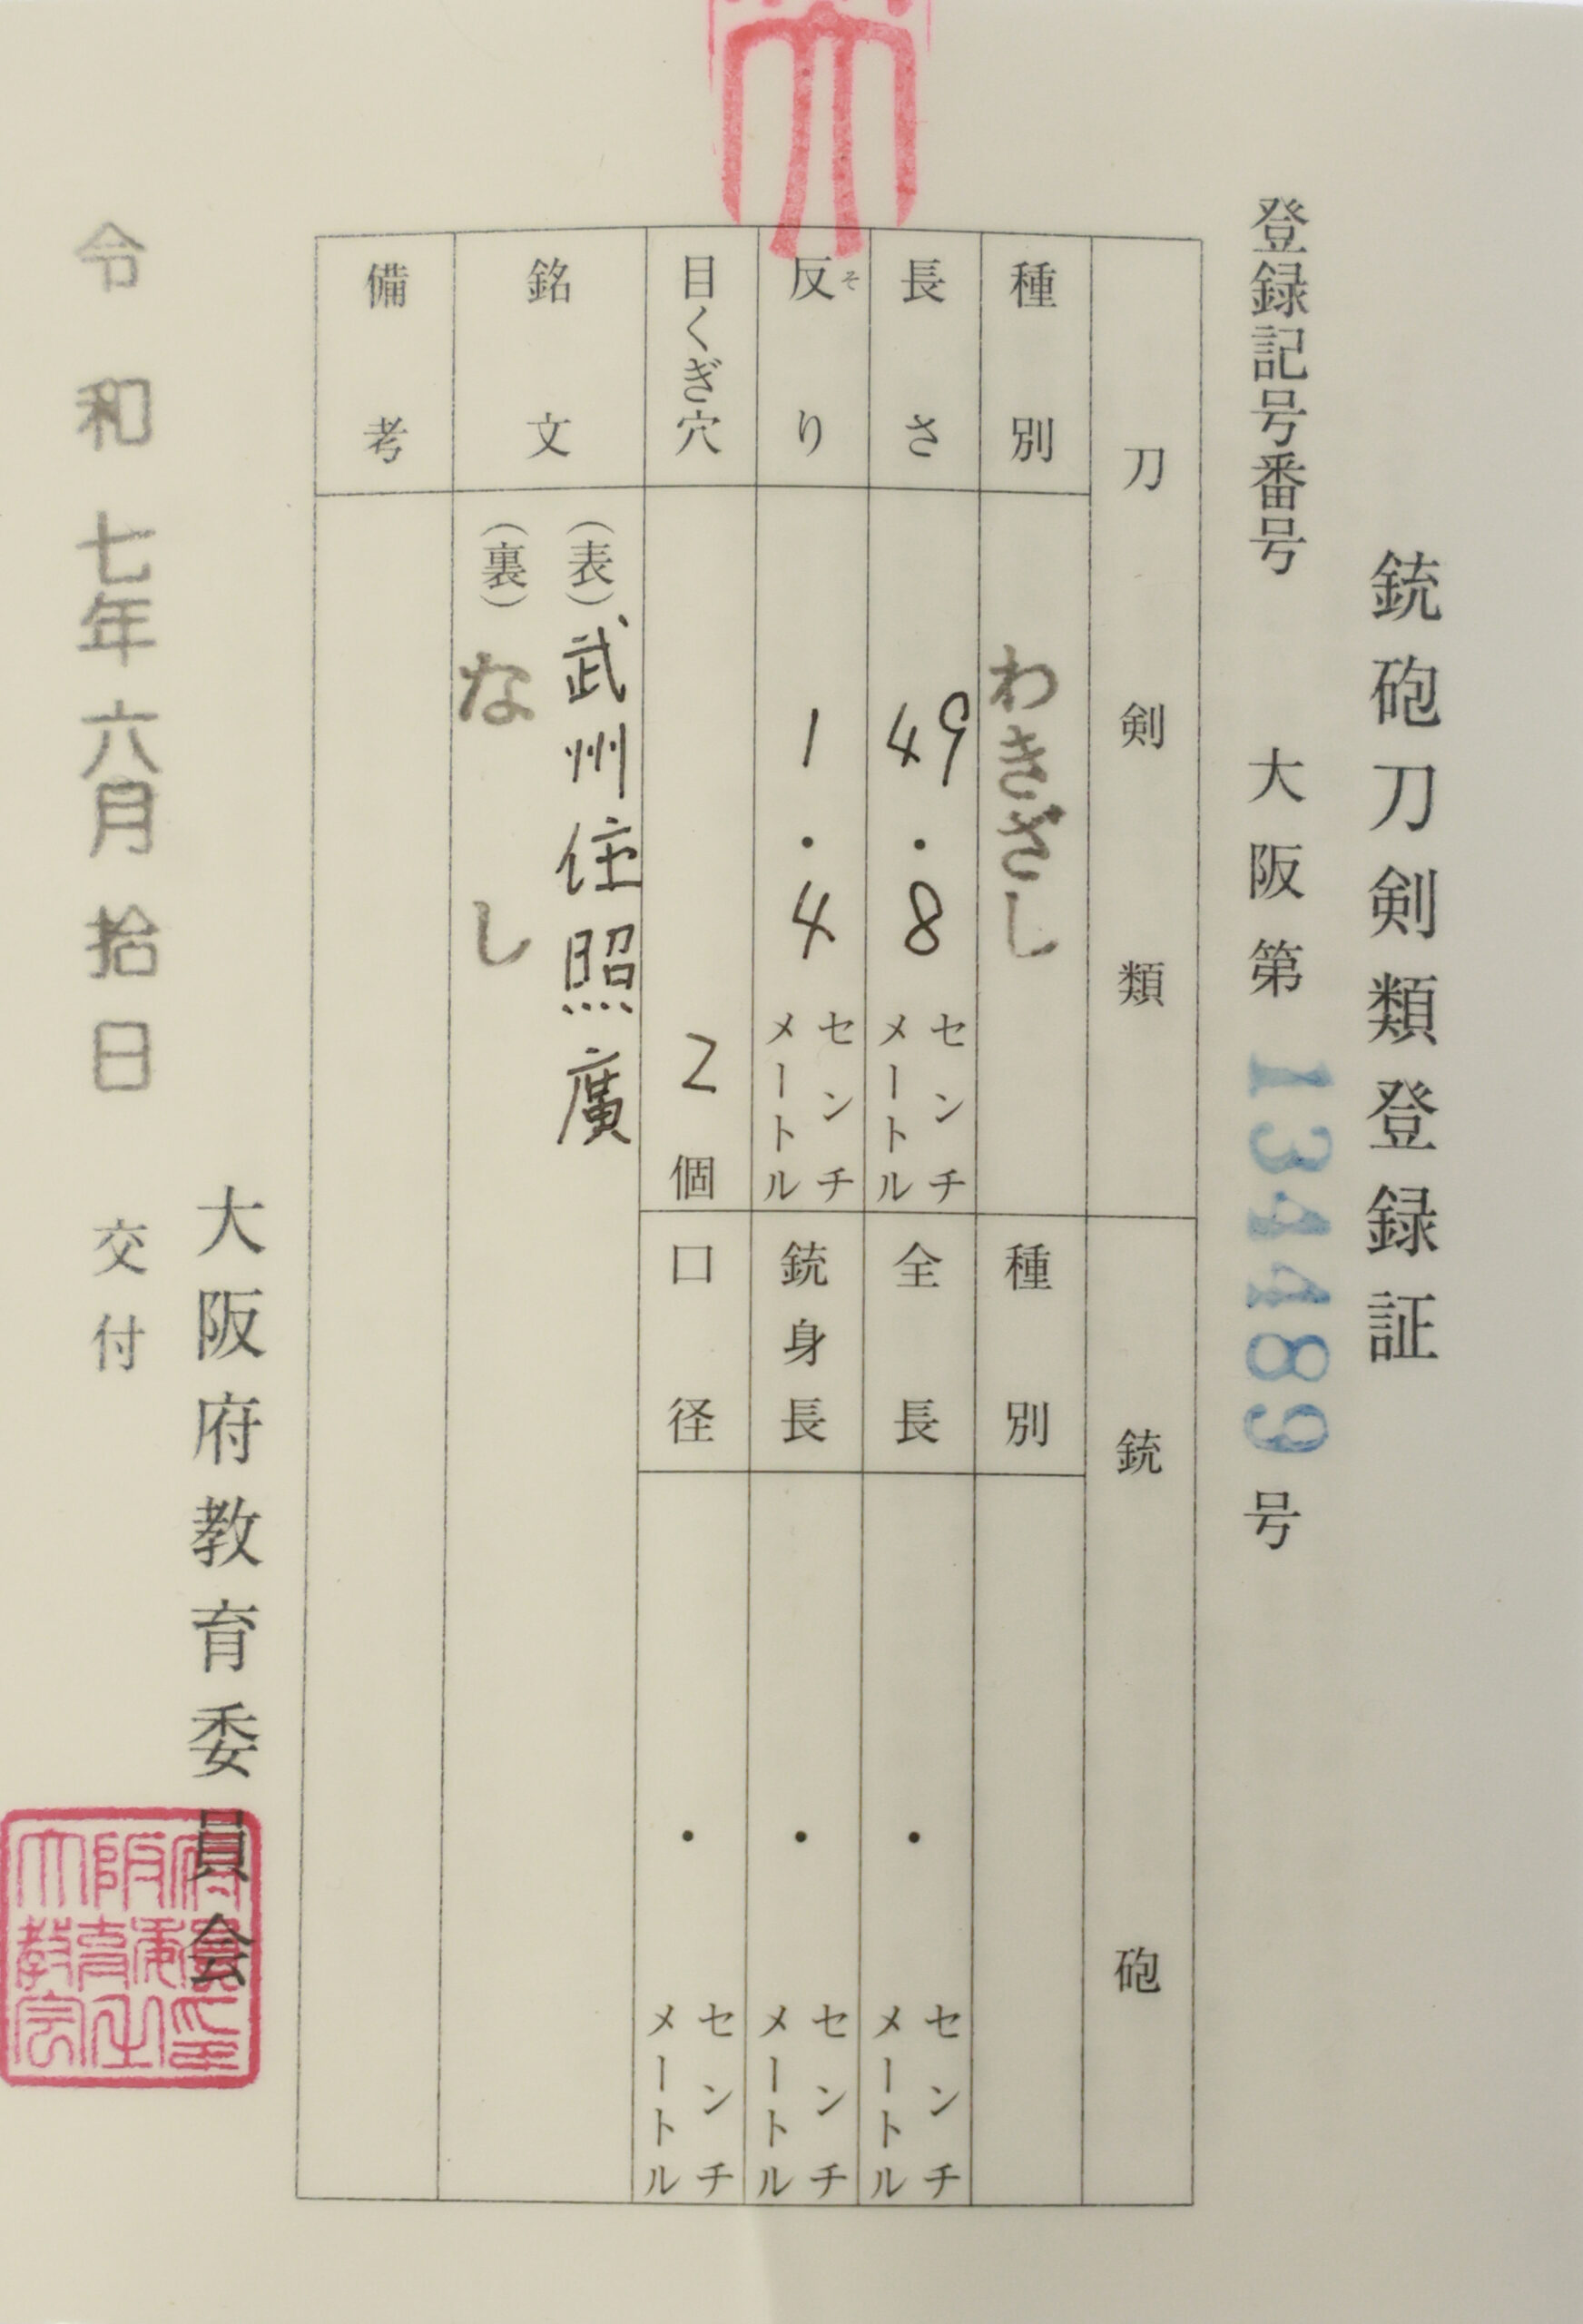 銃砲刀剣類登録証
登録記号番号 大阪第 134489 号
刀剣類
種別 わきざし
長さ 49.8 センチメートル
反り 1.4 センチメートル
そ
目くぎ穴 2 個
銘文 (表) 武州住照廣
(裏) なし
備考
銃砲
種別
全長 . センチメートル
銃身長 . センチメートル
口径 . センチメートル
大阪府教育委員会
令和七年六月拾日 交付
大阪府教育委員会之印